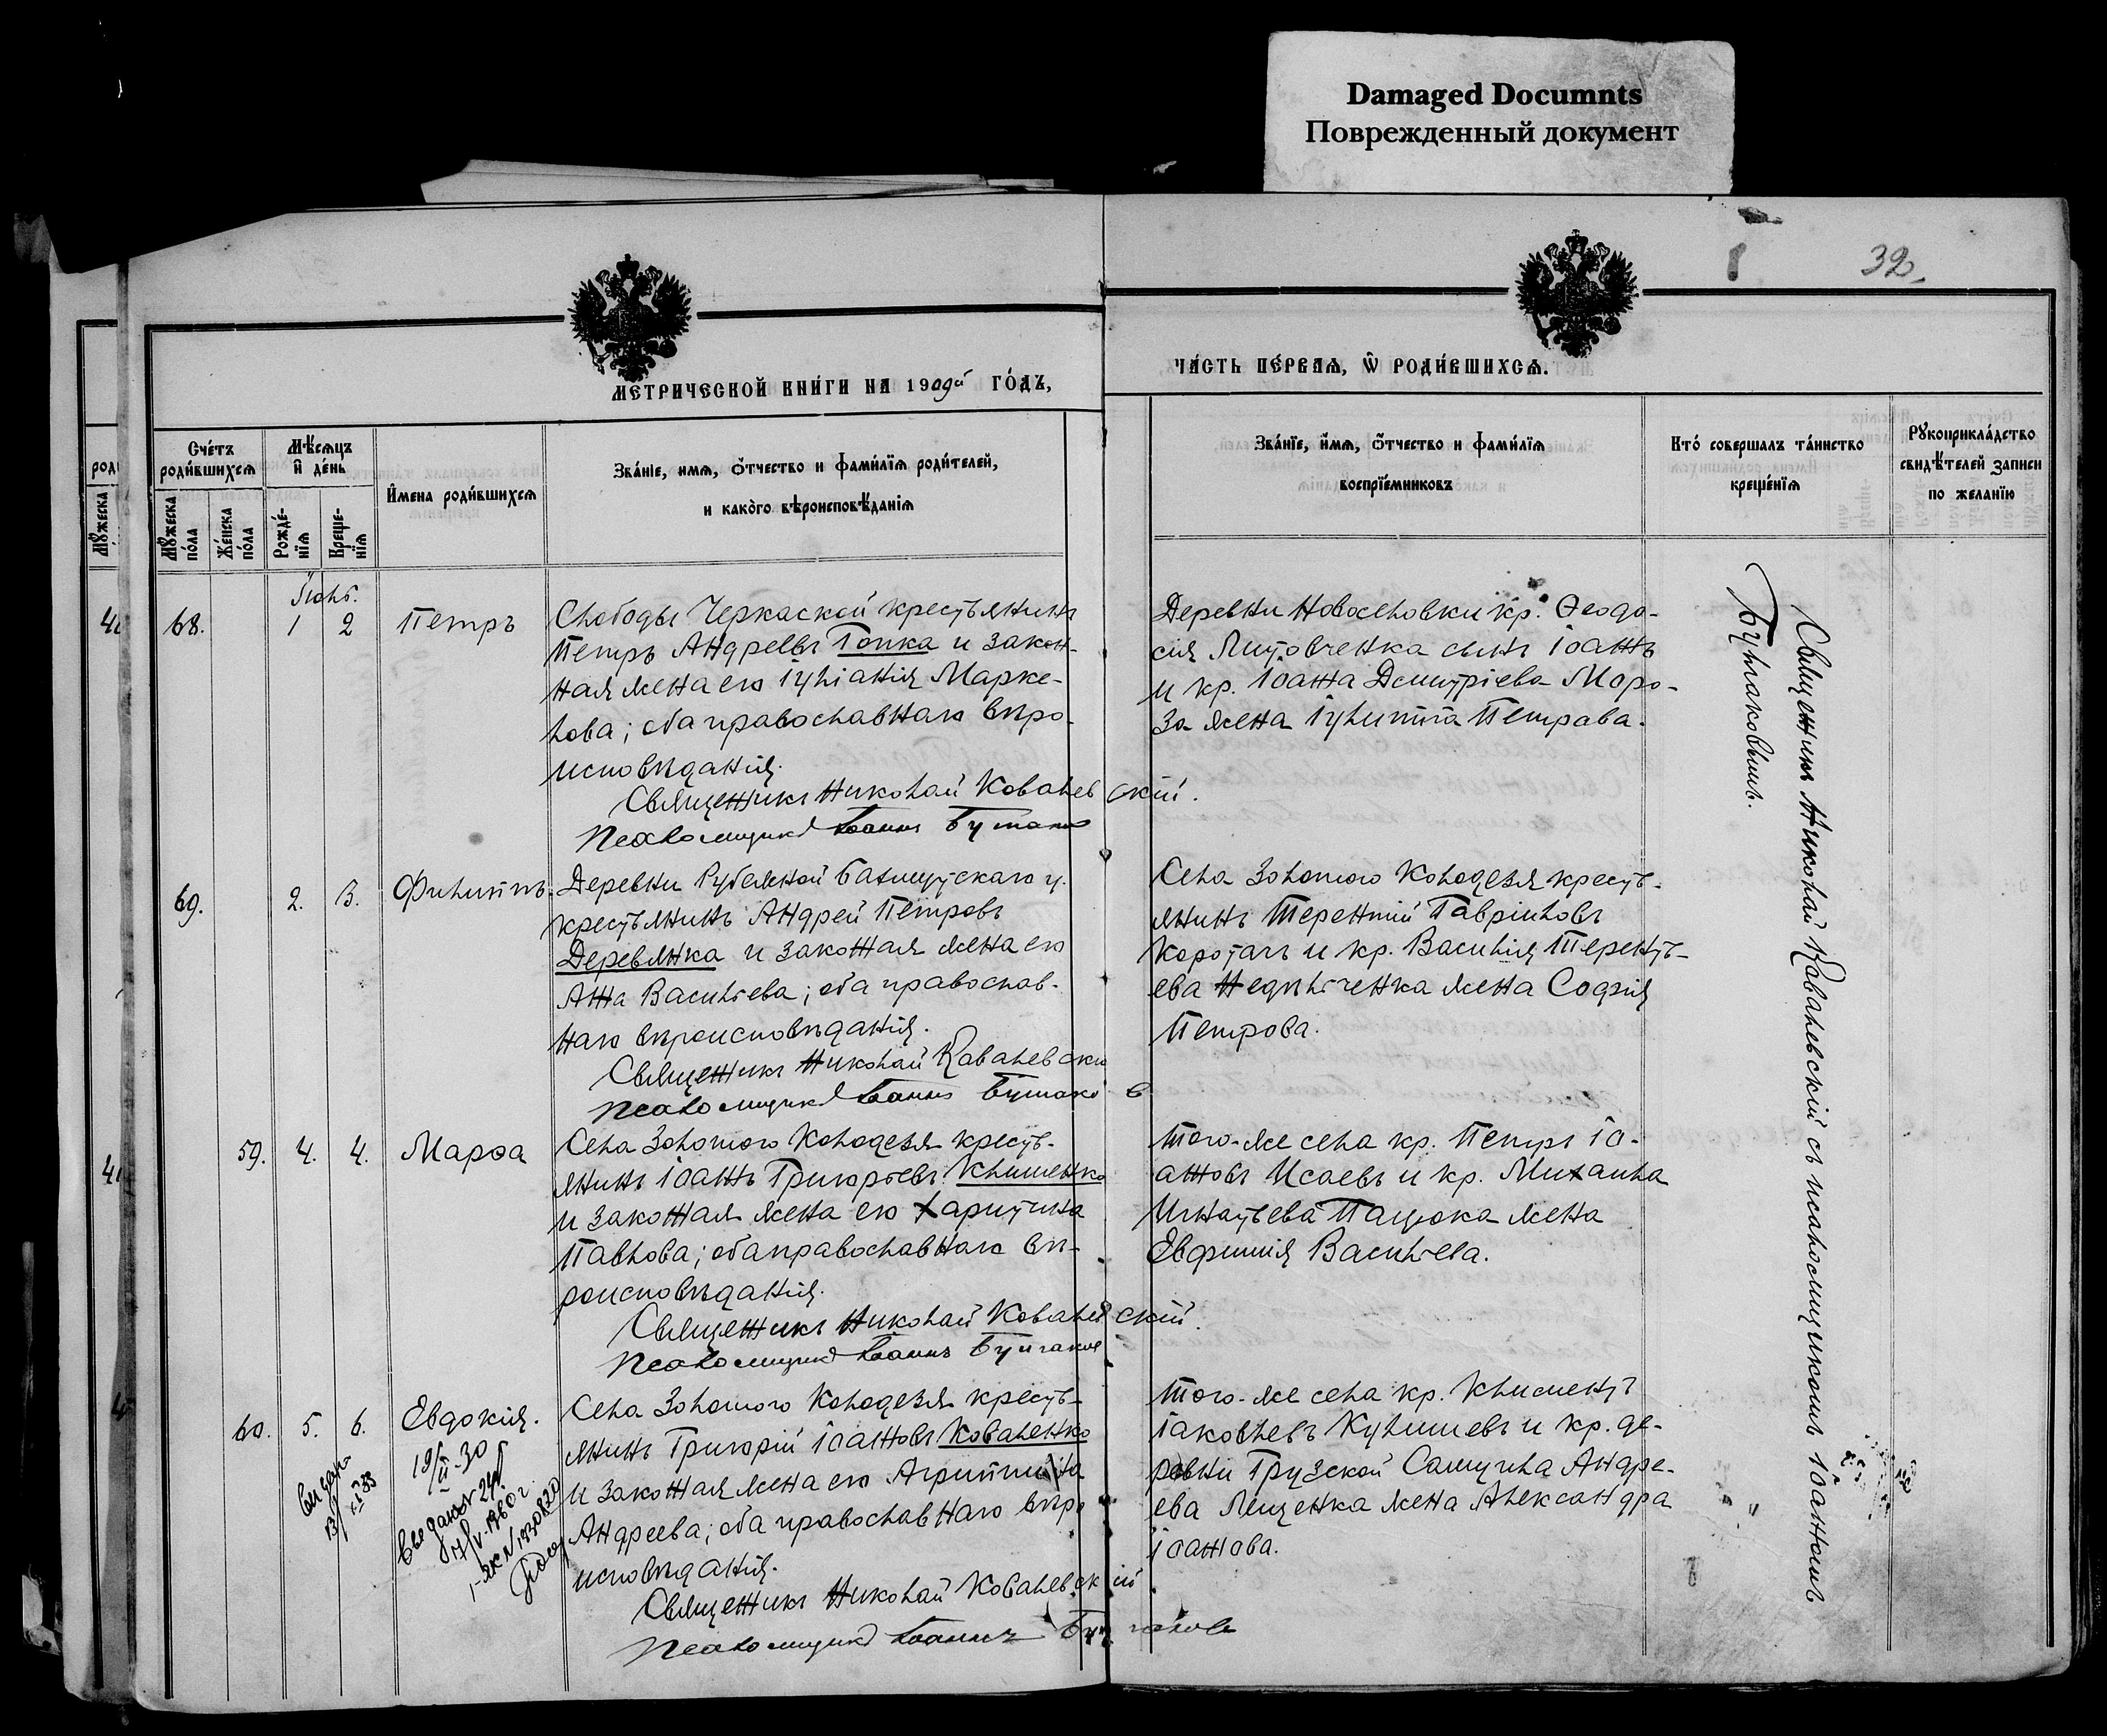 Damaged Documnts
Поврежденный документ
32
МЕТРИЧЕСКОЙ КНИ́ГИ НА 1909й ГО́ДЪ,
ЧА́СТЬ ПЕ́РВАѦ, Ѡ҆ РОДИ́ВШИХСѦ.
Сче́тъ
роди́вшихсѧ
Мꙋ́жеска
по́ла
Же́нска
по́ла
Мѣ́сѧцъ
и҆ де́нь
Рожде́-
нїѧ
Креще-
нїѧ
И҆мена роди́вшихсѧ
Зва́нїе, имѧ, о҆́тчество и фами́лїѧ роди́телей,
и како́го вѣроисповѣ́данїѧ
Зва́нїе, и҆́мѧ, о҆́тчество и фами́лїѧ
воспрїе́мниковъ
Кто́ соверша́лъ та́инство
креще́нїѧ
Рꙋкоприкла́дство
свидѣ́телей записи
по жела́нїю
Іюнь.
68.
1
2
Петръ
Слободы Черкаской крестьянинъ
Петръ Андреевъ Гопка и закон-
ная жена его Іуліанія Марке-
лова; оба православнаго вѣро-
исповѣданія.
Священникъ Николай Ковалевскій.
Псаломщикъ Іоаннъ Булгаковъ
Деревни Новоселовки кр. Ѳеодо-
сія Литовченка сынъ Іоаннъ
и кр. Іоанна Димитріева Моро-
за жена Іулитта Петрова.
69.
2.
3.
Филиппъ.
Деревни Рубежной Бахмутскаго у.
крестьянинъ Андрей Петровъ
Деревянка и законная жена его
Анна Васильева; оба православ-
наго вѣроисповѣданія.
Священникъ Николай Ковалевскій
Псаломщикъ Іоаннъ Булгаковъ
Села Золотого Колодезя кресть-
янинъ Терентій Гавріиловъ
Коротачъ и кр. Василія Терентъ-
ева Недѣльченка жена Софія
Петрова.
59.
4.
4.
Марѳа
Села Золотого Колодезя кресть-
янинъ Іоаннъ Григорьевъ Клименко
и законная жена его Харитина
Павлова; оба православнаго вѣ-
роисповѣданія.
Священникъ Николай Ковалевскій.
Псаломщикъ Іоаннъ Булгаковъ
Того-же села кр. Петръ Іо-
анновъ Исаевъ и кр. Михаила
Игнатьева Пацюка жена
Евфимія Васильева.
60.
5.
6.
Евдокія.
Села Золотого Колодезя кресть-
янинъ Григорій Іоанновъ Коваленко
и законная жена его Агриппина
Андреева; оба православнаго вѣро
исповѣданія.
Священникъ Николай Ковалевскій
Псаломщикъ Іоаннъ Булгаковъ
Того-же села кр. Климентъ
Іаковлевъ Кулишевъ и кр. де-
ревни Грузской Самуила Андре-
ева Лещенка жена Александра
Іоаннова.
выдана
19/III-30
17/V-1960 г.
Священникъ Николай Ковалевскій съ псаломщикомъ Іоанномъ
Булгаковымъ.